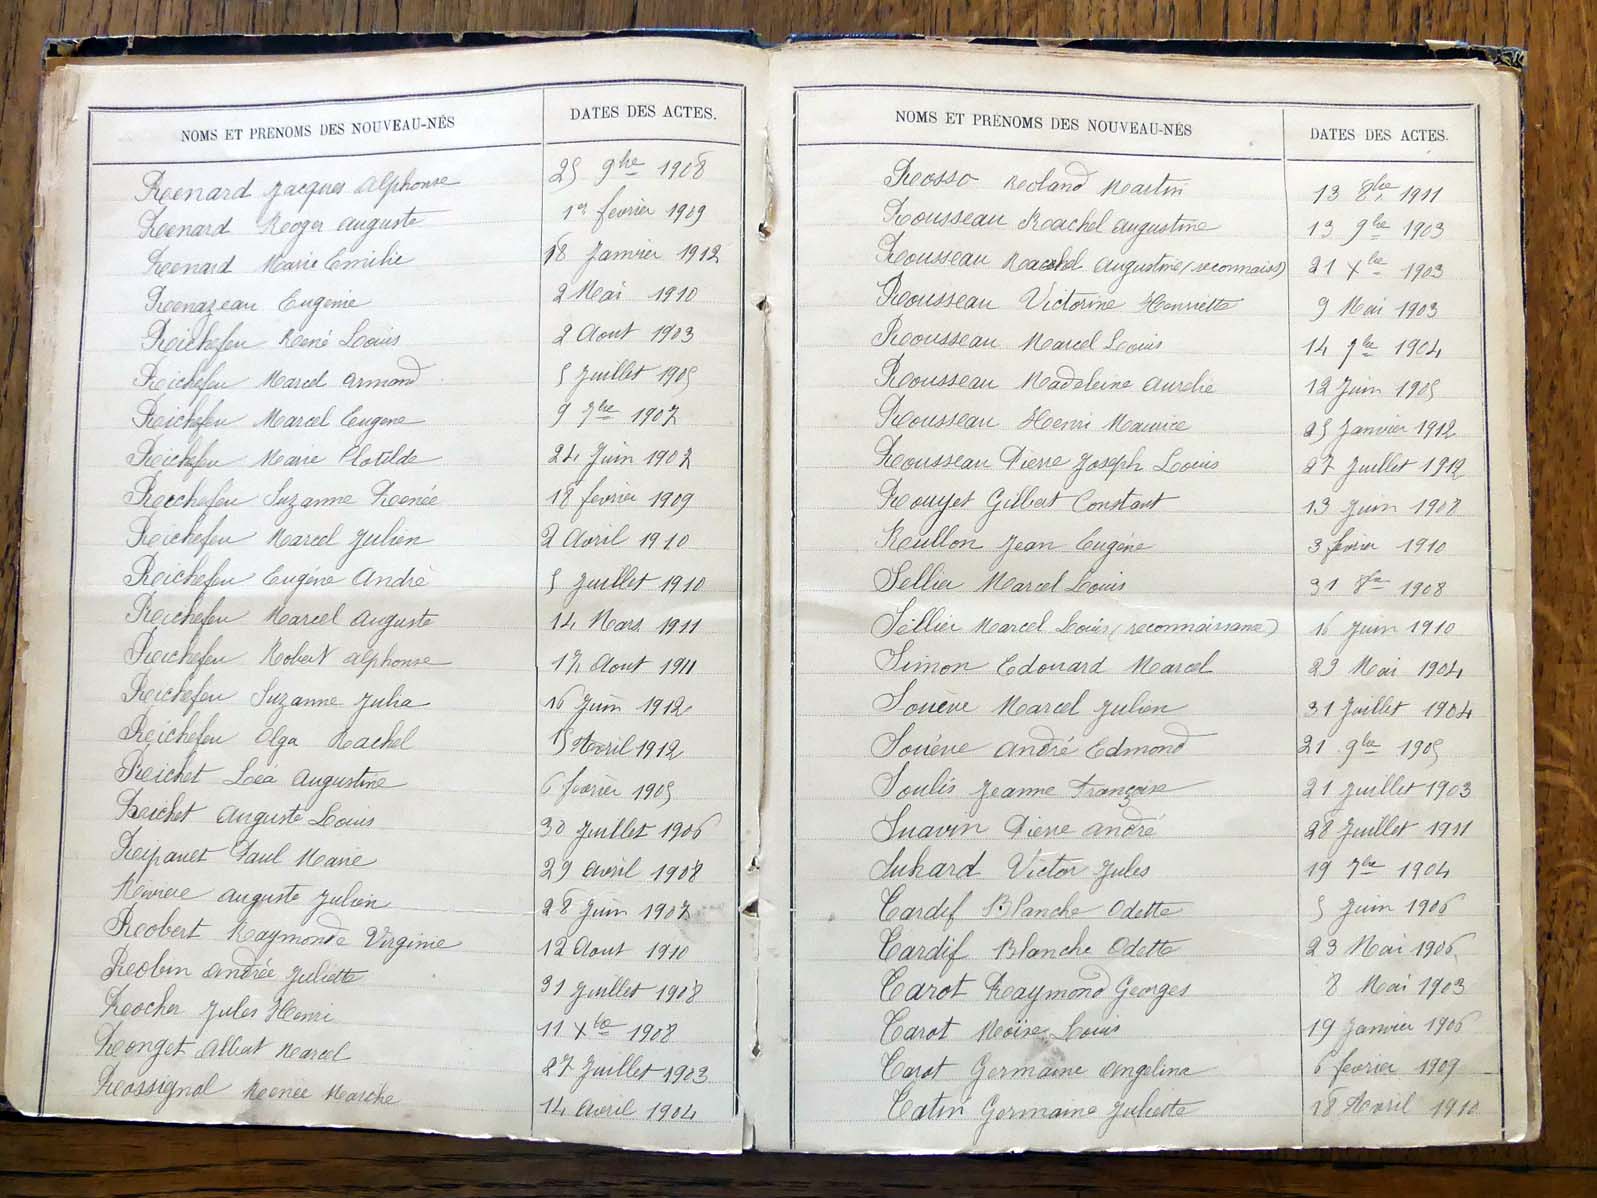 NOMS ET PRENOMS DES NOUVEAU-NÉS DATES DES ACTES.
Renard Jacques Alphonse 25 9bre 1908
Renard Roger Auguste 1er février 1909
Renard Marie Emilie 18 Janvier 1912
Renazeau Eugénie 2 Mai 1910
Richefeu René Louis 2 Aout 1903
Richefeu Marcel Armand 5 Juillet 1905
Richefeu Marcel Eugene 9 7bre 1907
Richefeu Marie Clotilde 24 Juin 1907
Richefeu Suzanne Renée 18 fevrier 1909
Richefeu Marcel Julien 2 Avril 1910
Richefeu Eugène André 5 Juillet 1910
Richefeu Marcel Auguste 14 Mars 1911
Richefeu Robert Alphonse 17 Aout 1911
Richefeu Suzanne Julia 16 Juin 1912
Richefeu Olga Rachel 15 Avril 1912
Richet Léa Augustine 6 février 1905
Richet Auguste Louis 30 Juillet 1906
Ripauet Paul Marie 29 Avril 1908
Riviere Auguste Julien 28 Juin 1907
Robert Raymonde Virginie 12 Aout 1910
Robin Andrée Juliette 31 Juillet 1908
Rocher Jules Henri 11 Xbre 1908
Ronget Albert Marcel 27 Juillet 1903
Rossignol Renée Marthe 14 Avril 1904
NOMS ET PRENOMS DES NOUVEAU-NÉS DATES DES ACTES.
Rosso Roland Martin 13 8bre 1911
Rousseau Rachel Augustine 13 9bre 1903
Rousseau Rachel Augustine (reconnaiss) 21 Xbre 1903
Rousseau Victorine Henriette 9 Mai 1903
Rousseau Marcel Louis 14 7bre 1904
Rousseau Madeleine Aurelie 12 Juin 1905
Rousseau Henri Maurice 25 Janvier 1912
Rousseau Pierre Joseph Louis 27 Juillet 1912
Rouyet Gilbert Constant 13 Juin 1908
Rullon Jean Eugène 3 fevrier 1910
Sellier Marcel Louis 31 8bre 1908
Sellier Marcel Louis (reconnaissance) 16 Juin 1910
Simon Edouard Marcel 29 Mai 1904
Souève Marcel Julien 31 Juillet 1904
Souève André Edmond 21 9bre 1905
Soulis Jeanne Françoise 21 Juillet 1903
Suavin Pierre André 28 Juillet 1911
Suhard Victor Jules 19 7bre 1904
Tardif Blanche Odette 5 Juin 1906
Tardif Blanche Odette 23 Mai 1906
Tarot Raymond Georges 8 Mai 1903
Tarot Moïse Louis 19 Janvier 1906
Tarot Germaine Angelina 6 fevrier 1909
Tatin Germaine Juliette 18 Avril 1910